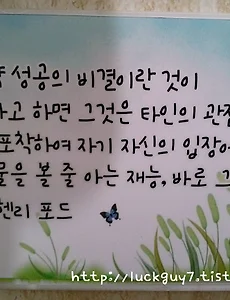 성공의 비결이란 것이
고 하면 그것은 타인의 관점
포착하여 자기 자신의 입장에
물을 볼 줄 아는 재능, 바로 그
헨리 포드
http://luckguy7.tist